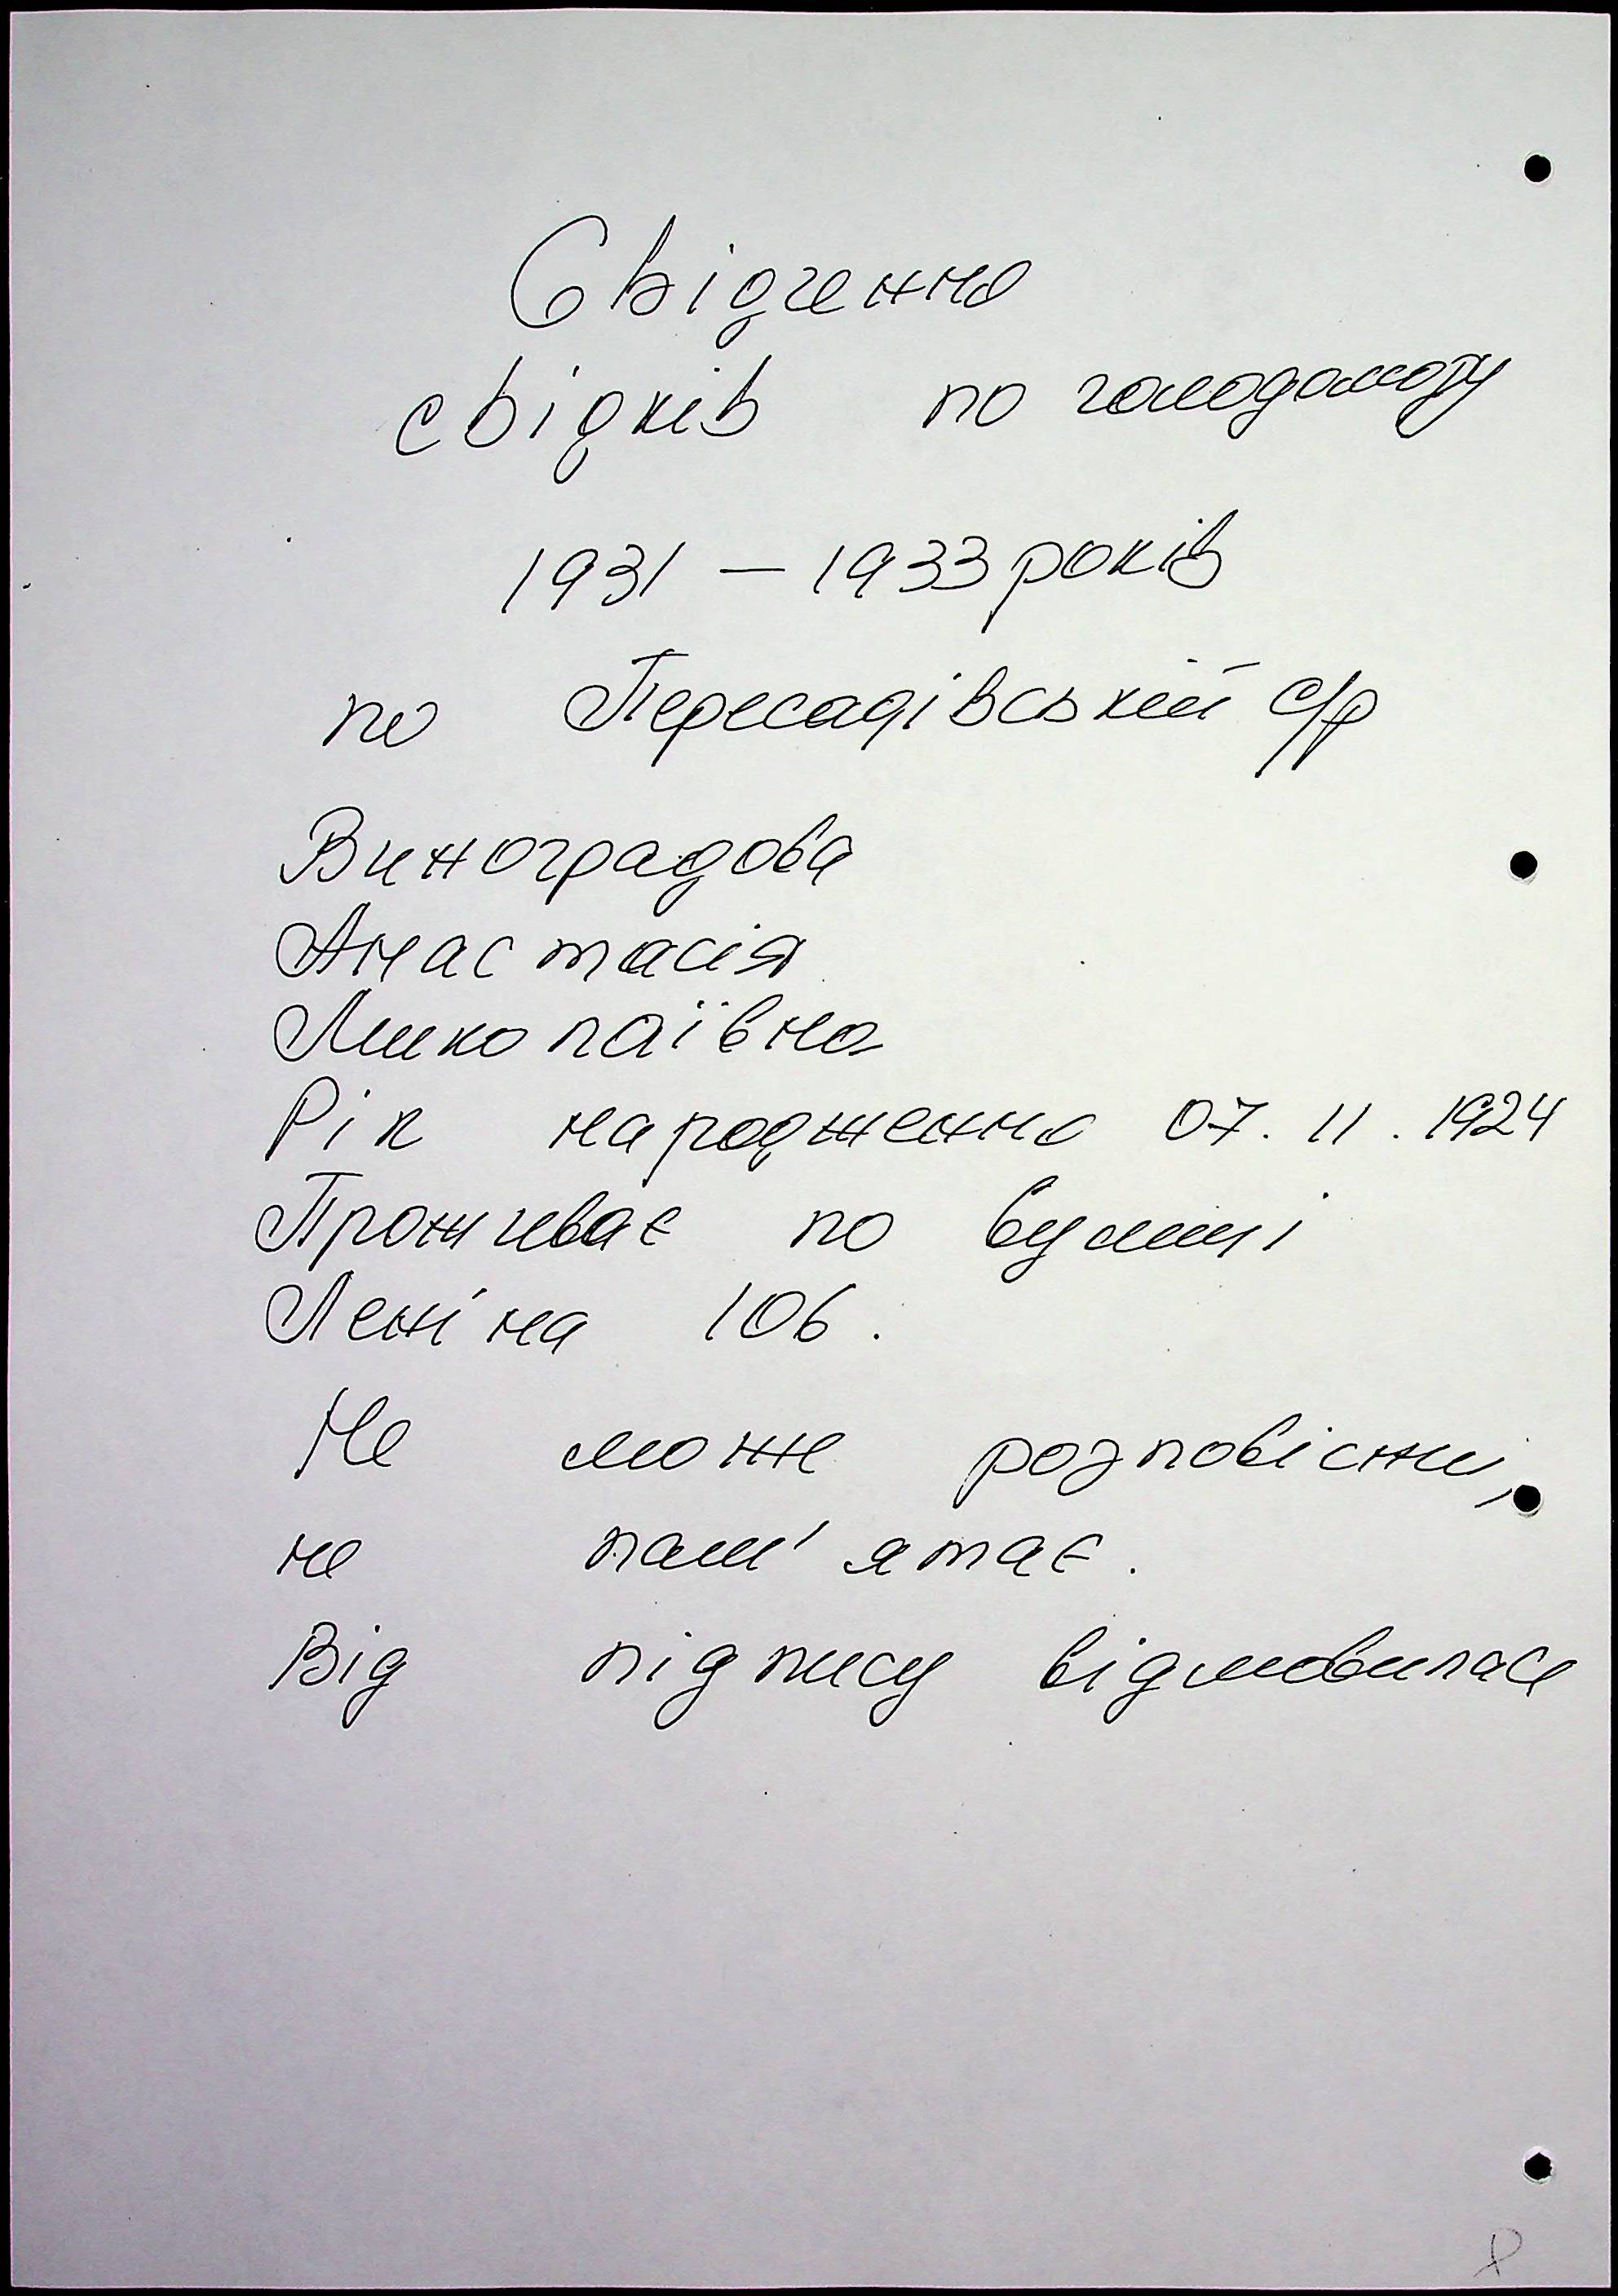 Свідчення
свідків по голодомору
1931 – 1933 років
по Пересадівській с/р
Виноградова
Анастасія
Миколаївна
Рік народження 07.11.1924
Проживає по вулиці
Леніна 106.
Не може розповісти,
не пам'ятає.
Від підпису відмовилась